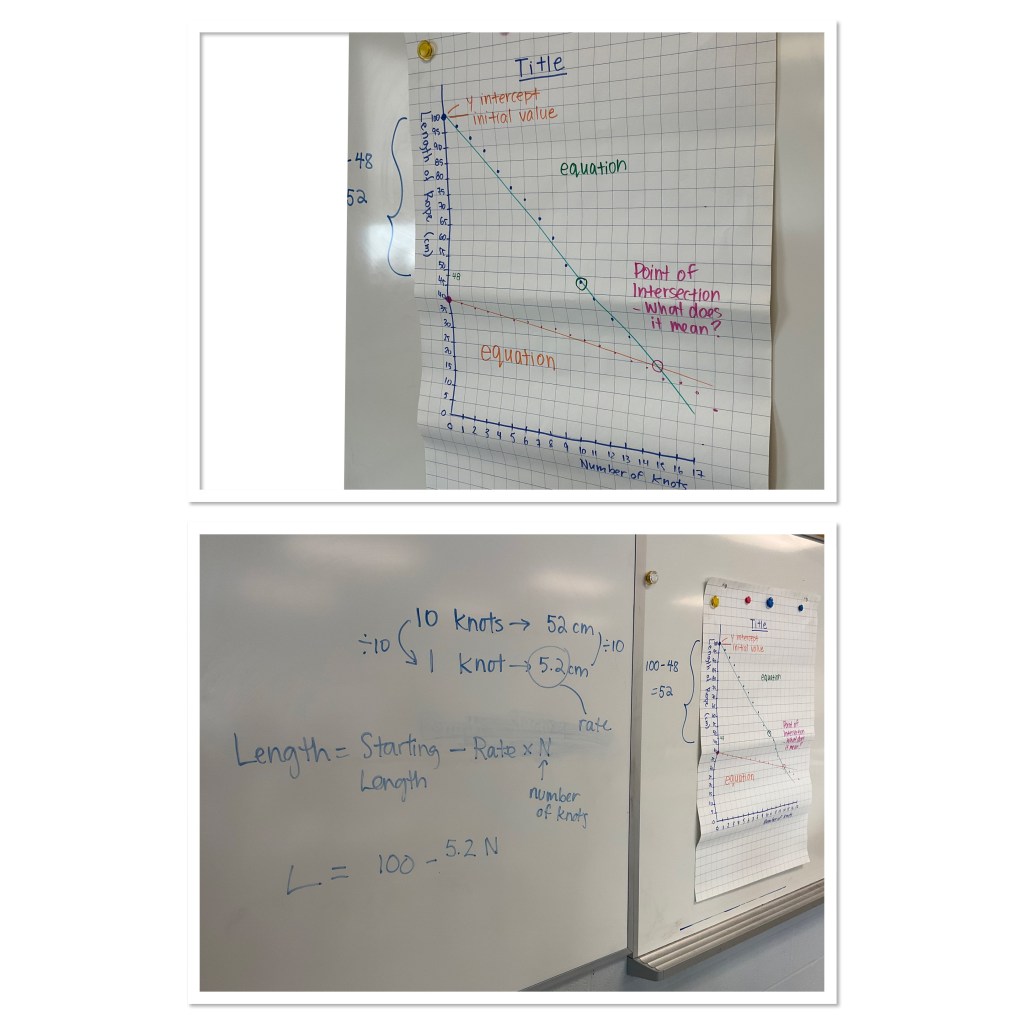 Title
Y intercept
initial value
100
95
90
85
80
75
70
65
60
55
50
45
40
35
30
25
20
15
10
5
0
Length of Rope (cm)
-48
52
48
equation
Point of
Intersection
- What does
it mean?
equation
0 1 2 3 4 5 6 7 8 9 10 11 12 13 14 15 16 17
Number of Knots
10 knots → 52 cm
÷10
÷10
1 knot → 5.2 cm
rate
Length = Starting - Rate × N
Length
number
of knots
L = 100 - 5.2 N
100-48
=52
Title
Y intercept
initial value
Length of Rope (cm)
equation
Point of
Intersection
What does
it mean?
equation
Number of Knots